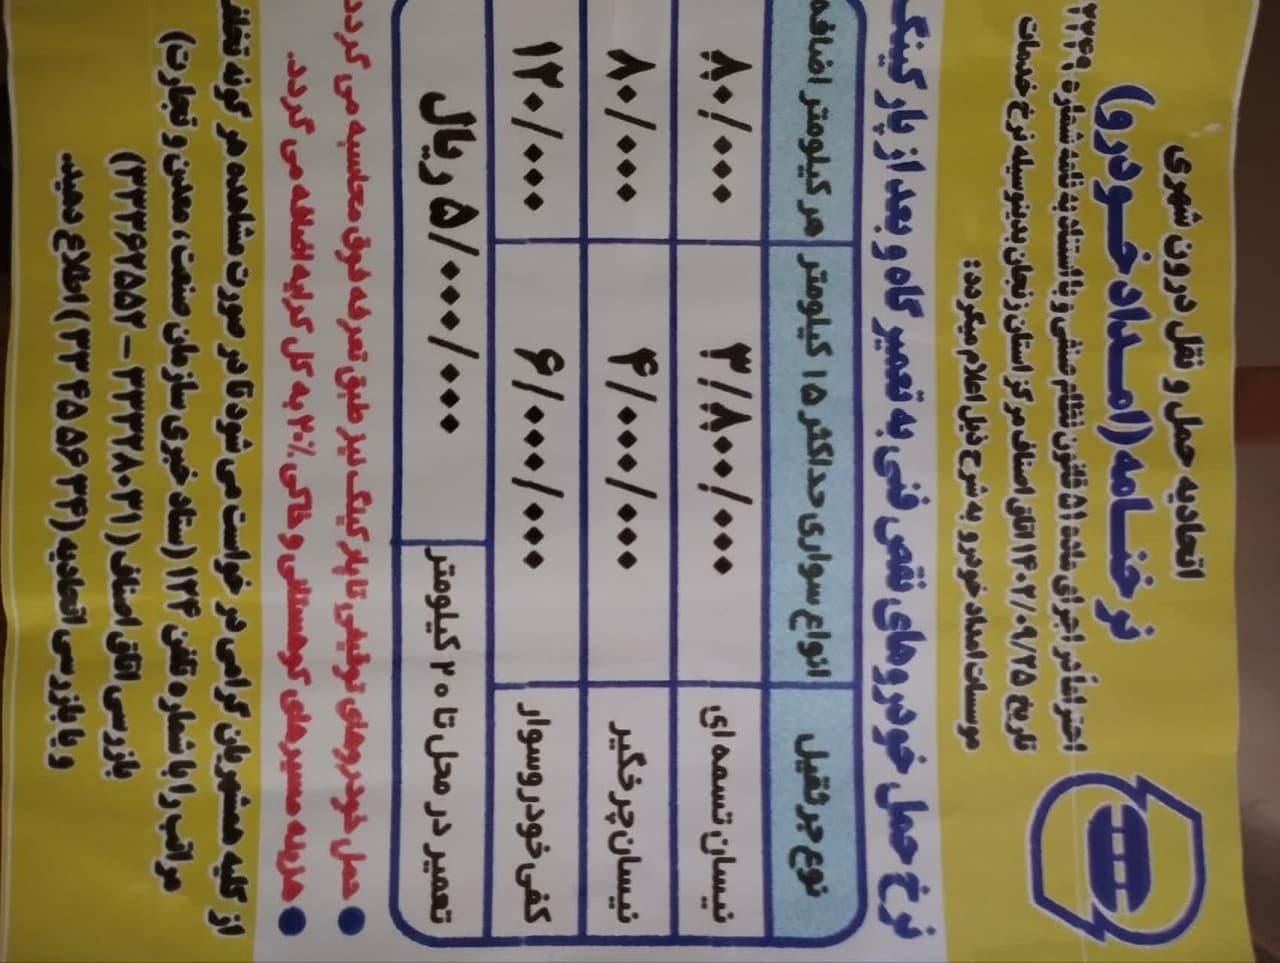 اتحادیه حمل و نقل درون شهری
نرخنامه (امداد خودرو)
احتراماً در اجرای ماده ۵۱ قانون نظام صنفی و با استناد به نامه شماره ۲۲۴۹
تاریخ ۱۴۰۲/۰۹/۲۵ اتاق اصناف مرکز استان زنجان بدینوسیله نرخ خدمات
موسسات امداد خودرو به شرح ذیل اعلام میگردد:
نرخ حمل خودروهای نقص فنی به تعمیرگاه و بعد از پارکینگ
نوع جرثقیل انواع سواری حداکثر ۱۵ کیلومتر هر کیلومتر اضافه
نیسان تسمه ای ۳/۸۰۰/۰۰۰ ۸۰/۰۰۰
نیسان چرخگیر ۴/۰۰۰/۰۰۰ ۸۰/۰۰۰
کفی خودروسوار ۶/۰۰۰/۰۰۰ ۱۲۰/۰۰۰
تعمیر در محل تا ۲۰ کیلومتر ۵/۰۰۰/۰۰۰ ریال
حمل خودروهای توقیفی تا پارکینگ نیز طبق تعرفه فوق محاسبه می گردد.
هزینه مسیرهای کوهستانی و خاکی ۲۰٪ به کل کرایه اضافه می گردد.
از کلیه مشتریان گرامی درخواست می شود تا در صورت مشاهده هر گونه تخلف
مراتب را با شماره تلفن ۱۲۴ (ستاد خبری سازمان صنعت، معدن و تجارت)
بازرسی اتاق اصناف (۳۳۳۲۸۰۳۱ - ۳۳۳۶۲۵۵۲)
و یا بازرسی اتحادیه (۳۳۴۵۵۶۳۴) اطلاع دهید